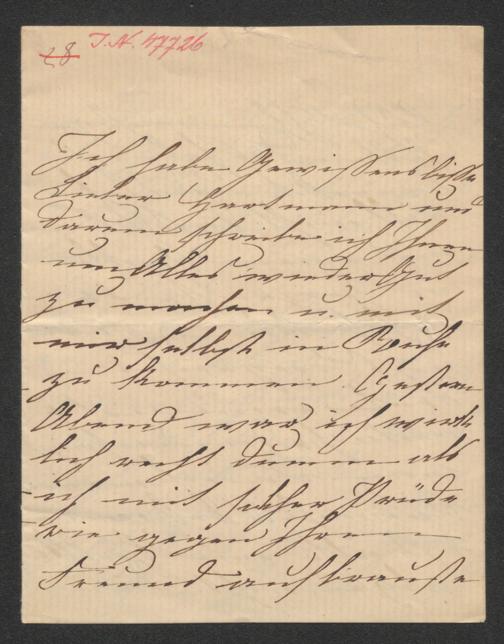 28 I.N. 47726
Ich habe Gewissensbisse
Lieber Hartmann und
darum schreibe ich Ihnen
um Alles wieder Gut
zu machen u. mit
mir selbst in Ruhe
zu kommen. Gestern
Abend war ich wirk
lich recht dumm als
ich mit solcher Prüde
rie gegen Ihren
Freund aufbrauste